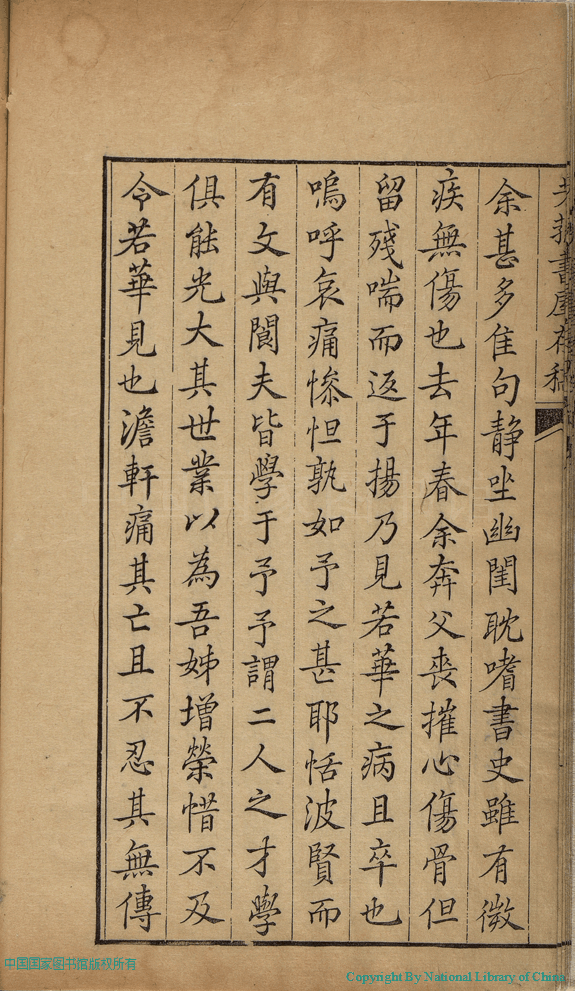 余甚多隹句静坐幽閨耽嗜書史雖有微
疾無傷也去年春余奔父喪摧心傷骨但
留殘喘而返于揚乃見若華之病且卒也
嗚呼哀痛慘怛孰如予之甚耶恬波賢而
有文與閬夫皆學于予予謂二人之才學
俱能光大其世業以為吾姊增榮惜不及
令若華見也澹軒痛其亡且不忍其無傳
中国国家图书馆版权所有
Copyright By National Library of China